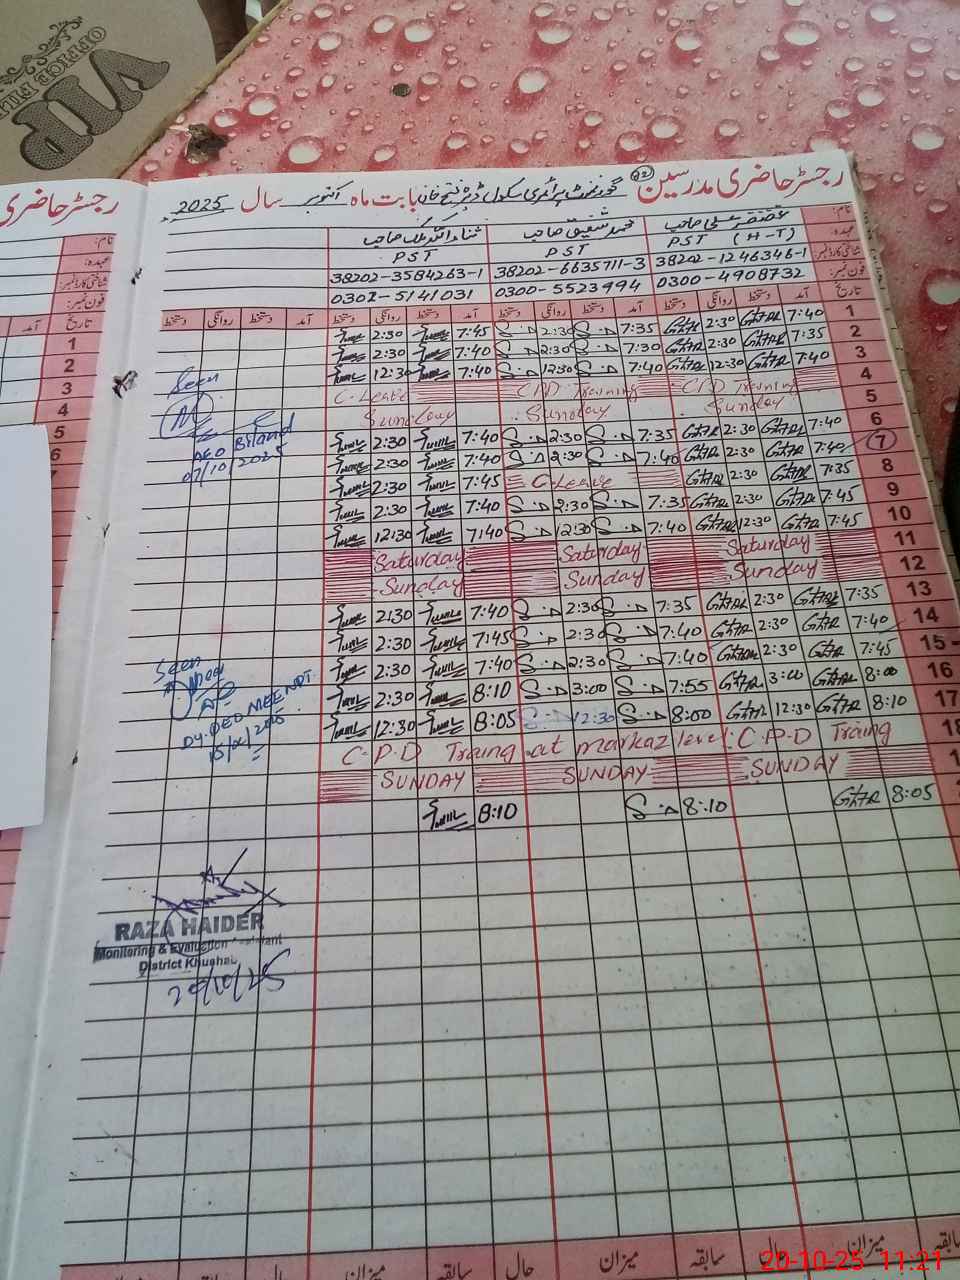 VIP
OFFICE FILE
رجسٹر حاضری مدرسین (22) گورنمنٹ پرائمری سکول ڈیرہ فتح خان بابت ماہ اکتوبر سال 2025
نام:
عہدہ: PST (H-T) PST PST
شناختی کارڈ نمبر: 38202-1246346-1 38202-6635711-3 38202-3584263-1
فون نمبر: 0300-4908732 0300-5523994 0302-5141031
تاریخ آمد دستخط روانگی دستخط آمد دستخط روانگی دستخط آمد دستخط روانگی دستخط آمد دستخط روانگی دستخط
1 7:40 2:30 7:35 2:30 7:45 2:30
2 7:35 2:30 7:30 2:30 7:40 2:30
3 7:40 12:30 7:40 12:30 7:40 12:30
4 C.P.D Training C.P.D Training C-Leave
5 Sunday Sunday Sunday
6 7:40 2:30 7:35 2:30 7:40 2:30
7 7:40 2:30 7:40 2:30 7:40 2:30
8 7:35 2:30 C-Leave 7:45 2:30
9 7:45 2:30 7:35 2:30 7:40 2:30
10 7:45 12:30 7:40 12:30 7:40 12:30
11 Saturday Saturday Saturday
12 Sunday Sunday Sunday
13 7:35 2:30 7:35 2:30 7:40 2:30
14 7:40 2:30 7:40 2:30 7:45 2:30
15 7:45 2:30 7:40 2:30 7:40 2:30
16 8:00 3:00 7:55 3:00 8:10 2:30
17 8:10 12:30 8:00 12:30 8:05 12:30
18 C.P.D Traing at markaz level. C.P.D Traing
SUNDAY SUNDAY SUNDAY
8:05 8:10 8:10
Seen
AEO Bland
07/10/2025
Seen
Dy. DEO MEE NPT.
15/10/2025
RAZA HAIDER
Monitoring & Evaluation Assistant
District Khushab
20/10/25
میزان سابقہ حال میزان سابقہ حال میزان سابقہ
رجسٹر حاضری
نام:
عہدہ:
شناختی کارڈ نمبر:
فون نمبر:
تاریخ آمد
1
2
3
4
5
6
20-10-25 11:21